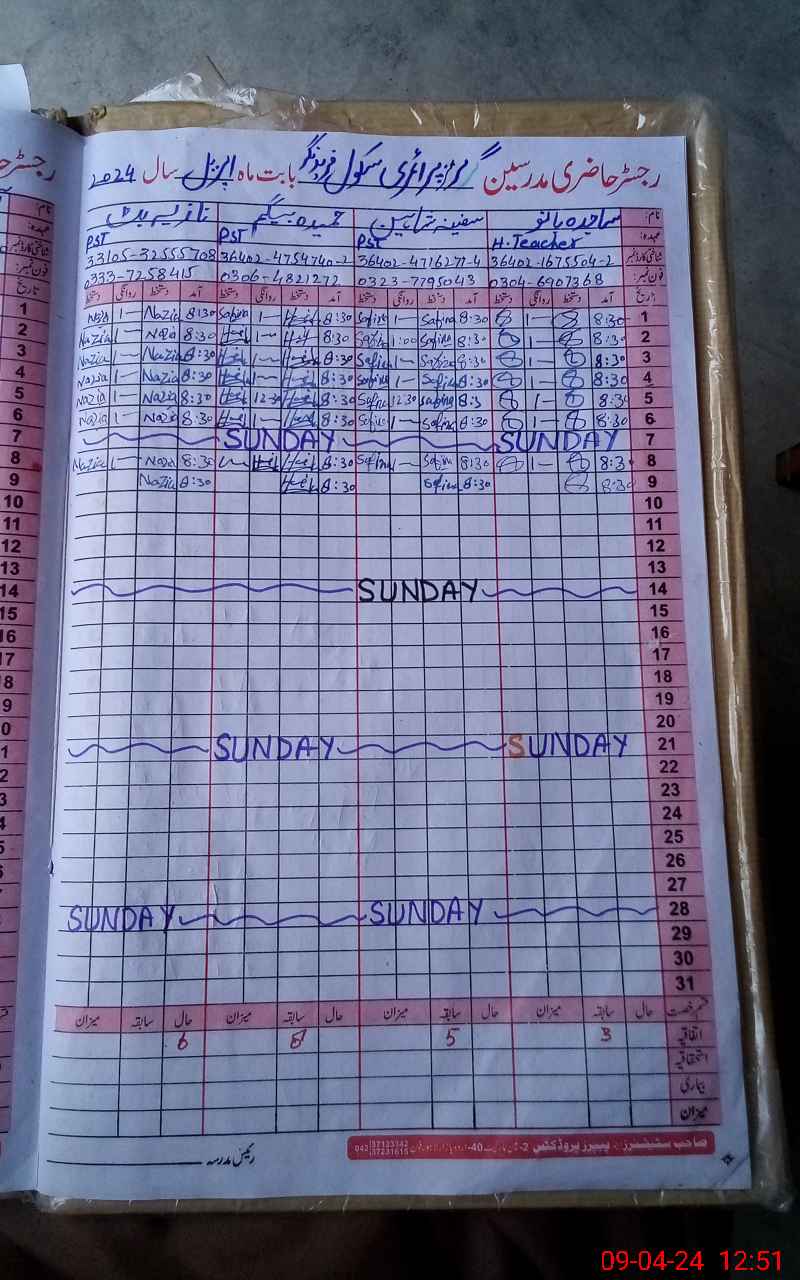 رجسٹر حاضری مدرسین گرلز پرائمری سکول بابت ماہ اپریل سال 2024
نام: ساجدہ بانو سفینہ شاہین حمیدہ بیگم نازیہ بٹ
عہدہ: H. Teacher PST PST PST
شناختی کارڈ نمبر 36402-1675504-2 36402-4716271-4 36402-4754740-2 33105-32555708
فون نمبر: 0304-6907368 0323-7795043 0306-4821272 0333-7258415
تاریخ آمد دستخط روانگی دستخط آمد دستخط روانگی دستخط آمد دستخط روانگی دستخط آمد دستخط روانگی دستخط
1 8:30 1— 8:30 Safina 1— 8:30 1— 8:30 Nazia 1— Nazia
2 8:30 1— 8:30 Safina 1:00 Safina 8:30 1— 8:30 Nazia 1— Nazia
3 8:30 1— 8:30 Safina 1— Safina 8:30 1— 8:30 Nazia 1— Nazia
4 8:30 1— 8:30 Safina 1— Safina 8:30 1— 8:30 Nazia 1— Nazia
5 8:30 1— 8:3 Safina 12:30 Safina 8:30 12:30 8:30 Nazia 1— Nazia
6 8:30 1— 8:30 Safina 1— Safina 8:30 1— 8:30 Nazia 1— Nazia
7 SUNDAY SUNDAY
8 8:30 1— 8:30 Safina 1— Safina 8:30 8:30 Nazia 1— Nazia
9 8:30 8:30 Safina 8:30 8:30 Nazia
10
11
12
13
14 SUNDAY
15
16
17
18
19
20
21 SUNDAY SUNDAY
22
23
24
25
26
27
28 SUNDAY SUNDAY
29
30
31
قسم رخصت حال سابقہ میزان حال سابقہ میزان حال سابقہ میزان حال سابقہ میزان
اتفاقیہ 3 5 8 6
استحقاقیہ
بیماری
میزان
صاحب سٹیشنرز اینڈ پیپرز پروڈکٹس
042 37123342
37231615
رئیس مدرسہ
09-04-24 12:51